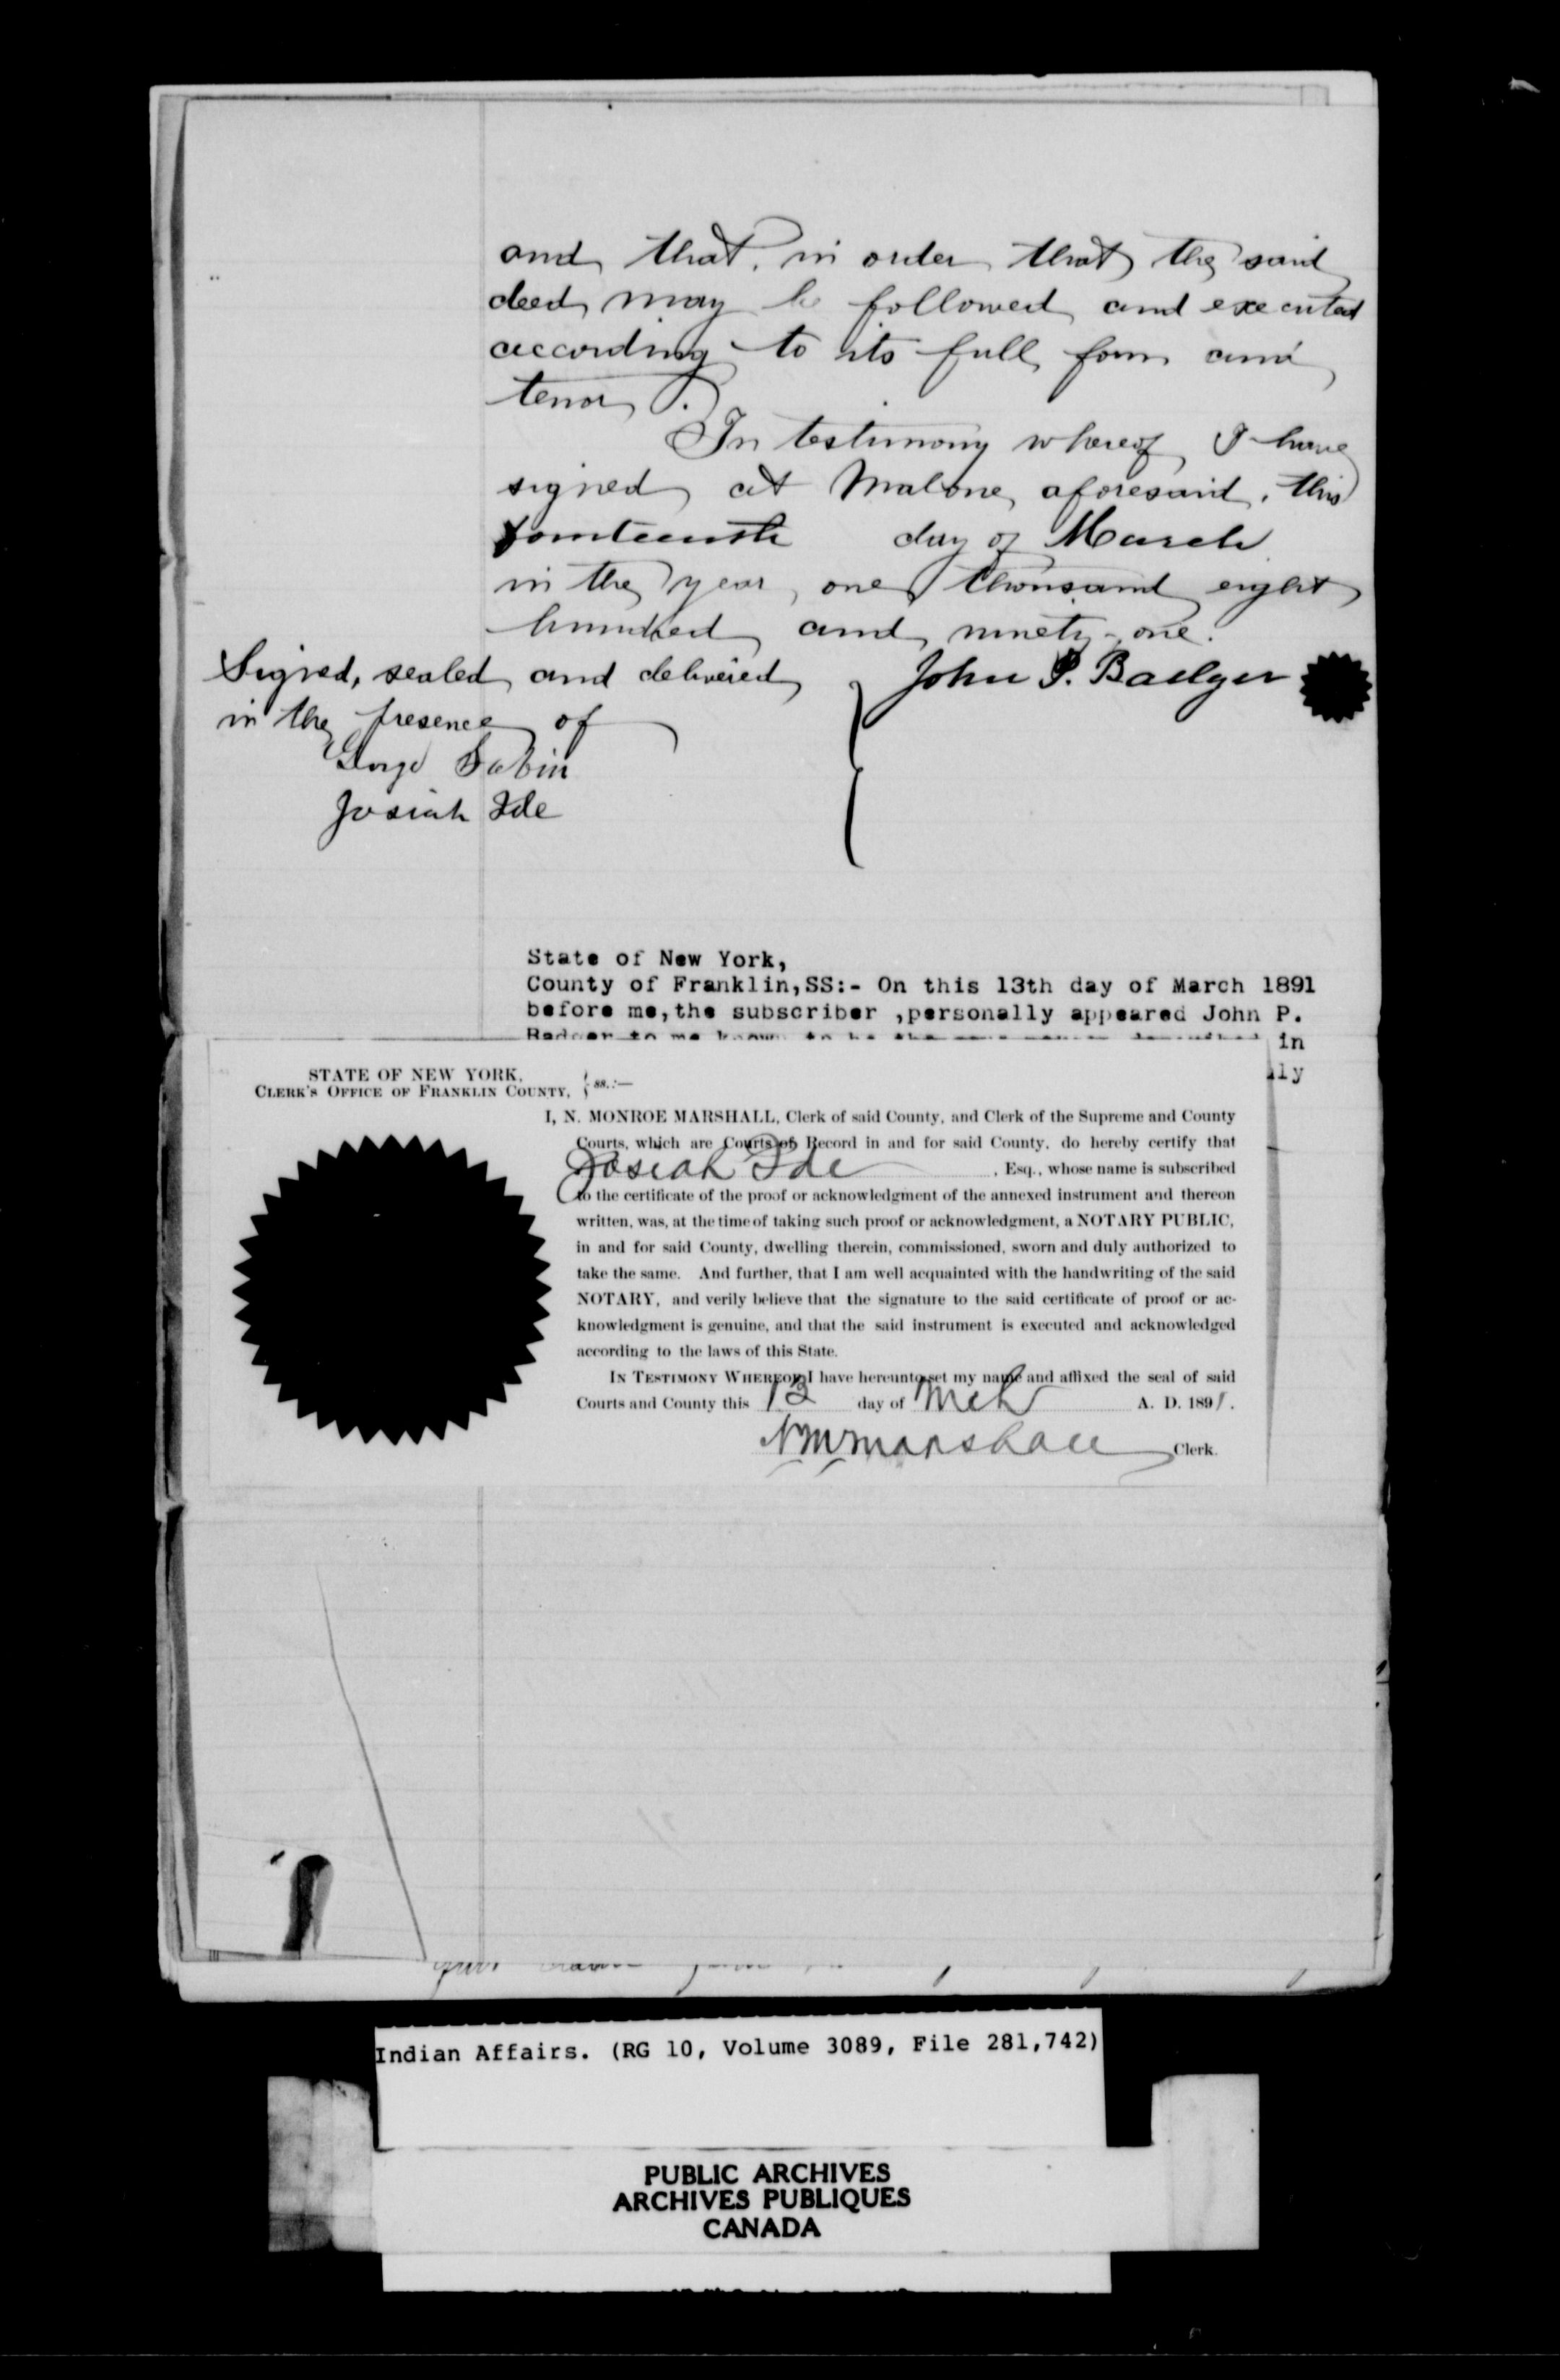 and that, in order that the said
deed may be followed and executed
according to its full form and
tenor.
In testimony whereof I have
signed at Malone, aforesaid, this
fourteenth day of March
in the year one thousand eight
hundred and ninety-one.
Signed, sealed and delivered
in the presence of
George Sabin
Josiah Ide
John P. Badger
State of New York,
County of Franklin,SS:- On this 13th day of March 1891
before me,the subscriber ,personally appeared John P.
Badger to me known to be the same person described in
STATE OF NEW YORK,
CLERK'S OFFICE OF FRANKLIN COUNTY, } ss.:—
I, N. MONROE MARSHALL, Clerk of said County, and Clerk of the Supreme and County
Courts, which are Courts of Record in and for said County, do hereby certify that
Josiah Ide , Esq., whose name is subscribed
to the certificate of the proof or acknowledgment of the annexed instrument and thereon
written, was, at the time of taking such proof or acknowledgment, a NOTARY PUBLIC,
in and for said County, dwelling therein, commissioned, sworn and duly authorized to
take the same. And further, that I am well acquainted with the handwriting of the said
NOTARY, and verily believe that the signature to the said certificate of proof or ac-
knowledgment is genuine, and that the said instrument is executed and acknowledged
according to the laws of this State.
IN TESTIMONY WHEREOF, I have hereunto set my name and affixed the seal of said
Courts and County this 13 day of Mch A. D. 1891.
N M Marshall Clerk.
Indian Affairs. (RG 10, Volume 3089, File 281,742)
PUBLIC ARCHIVES
ARCHIVES PUBLIQUES
CANADA